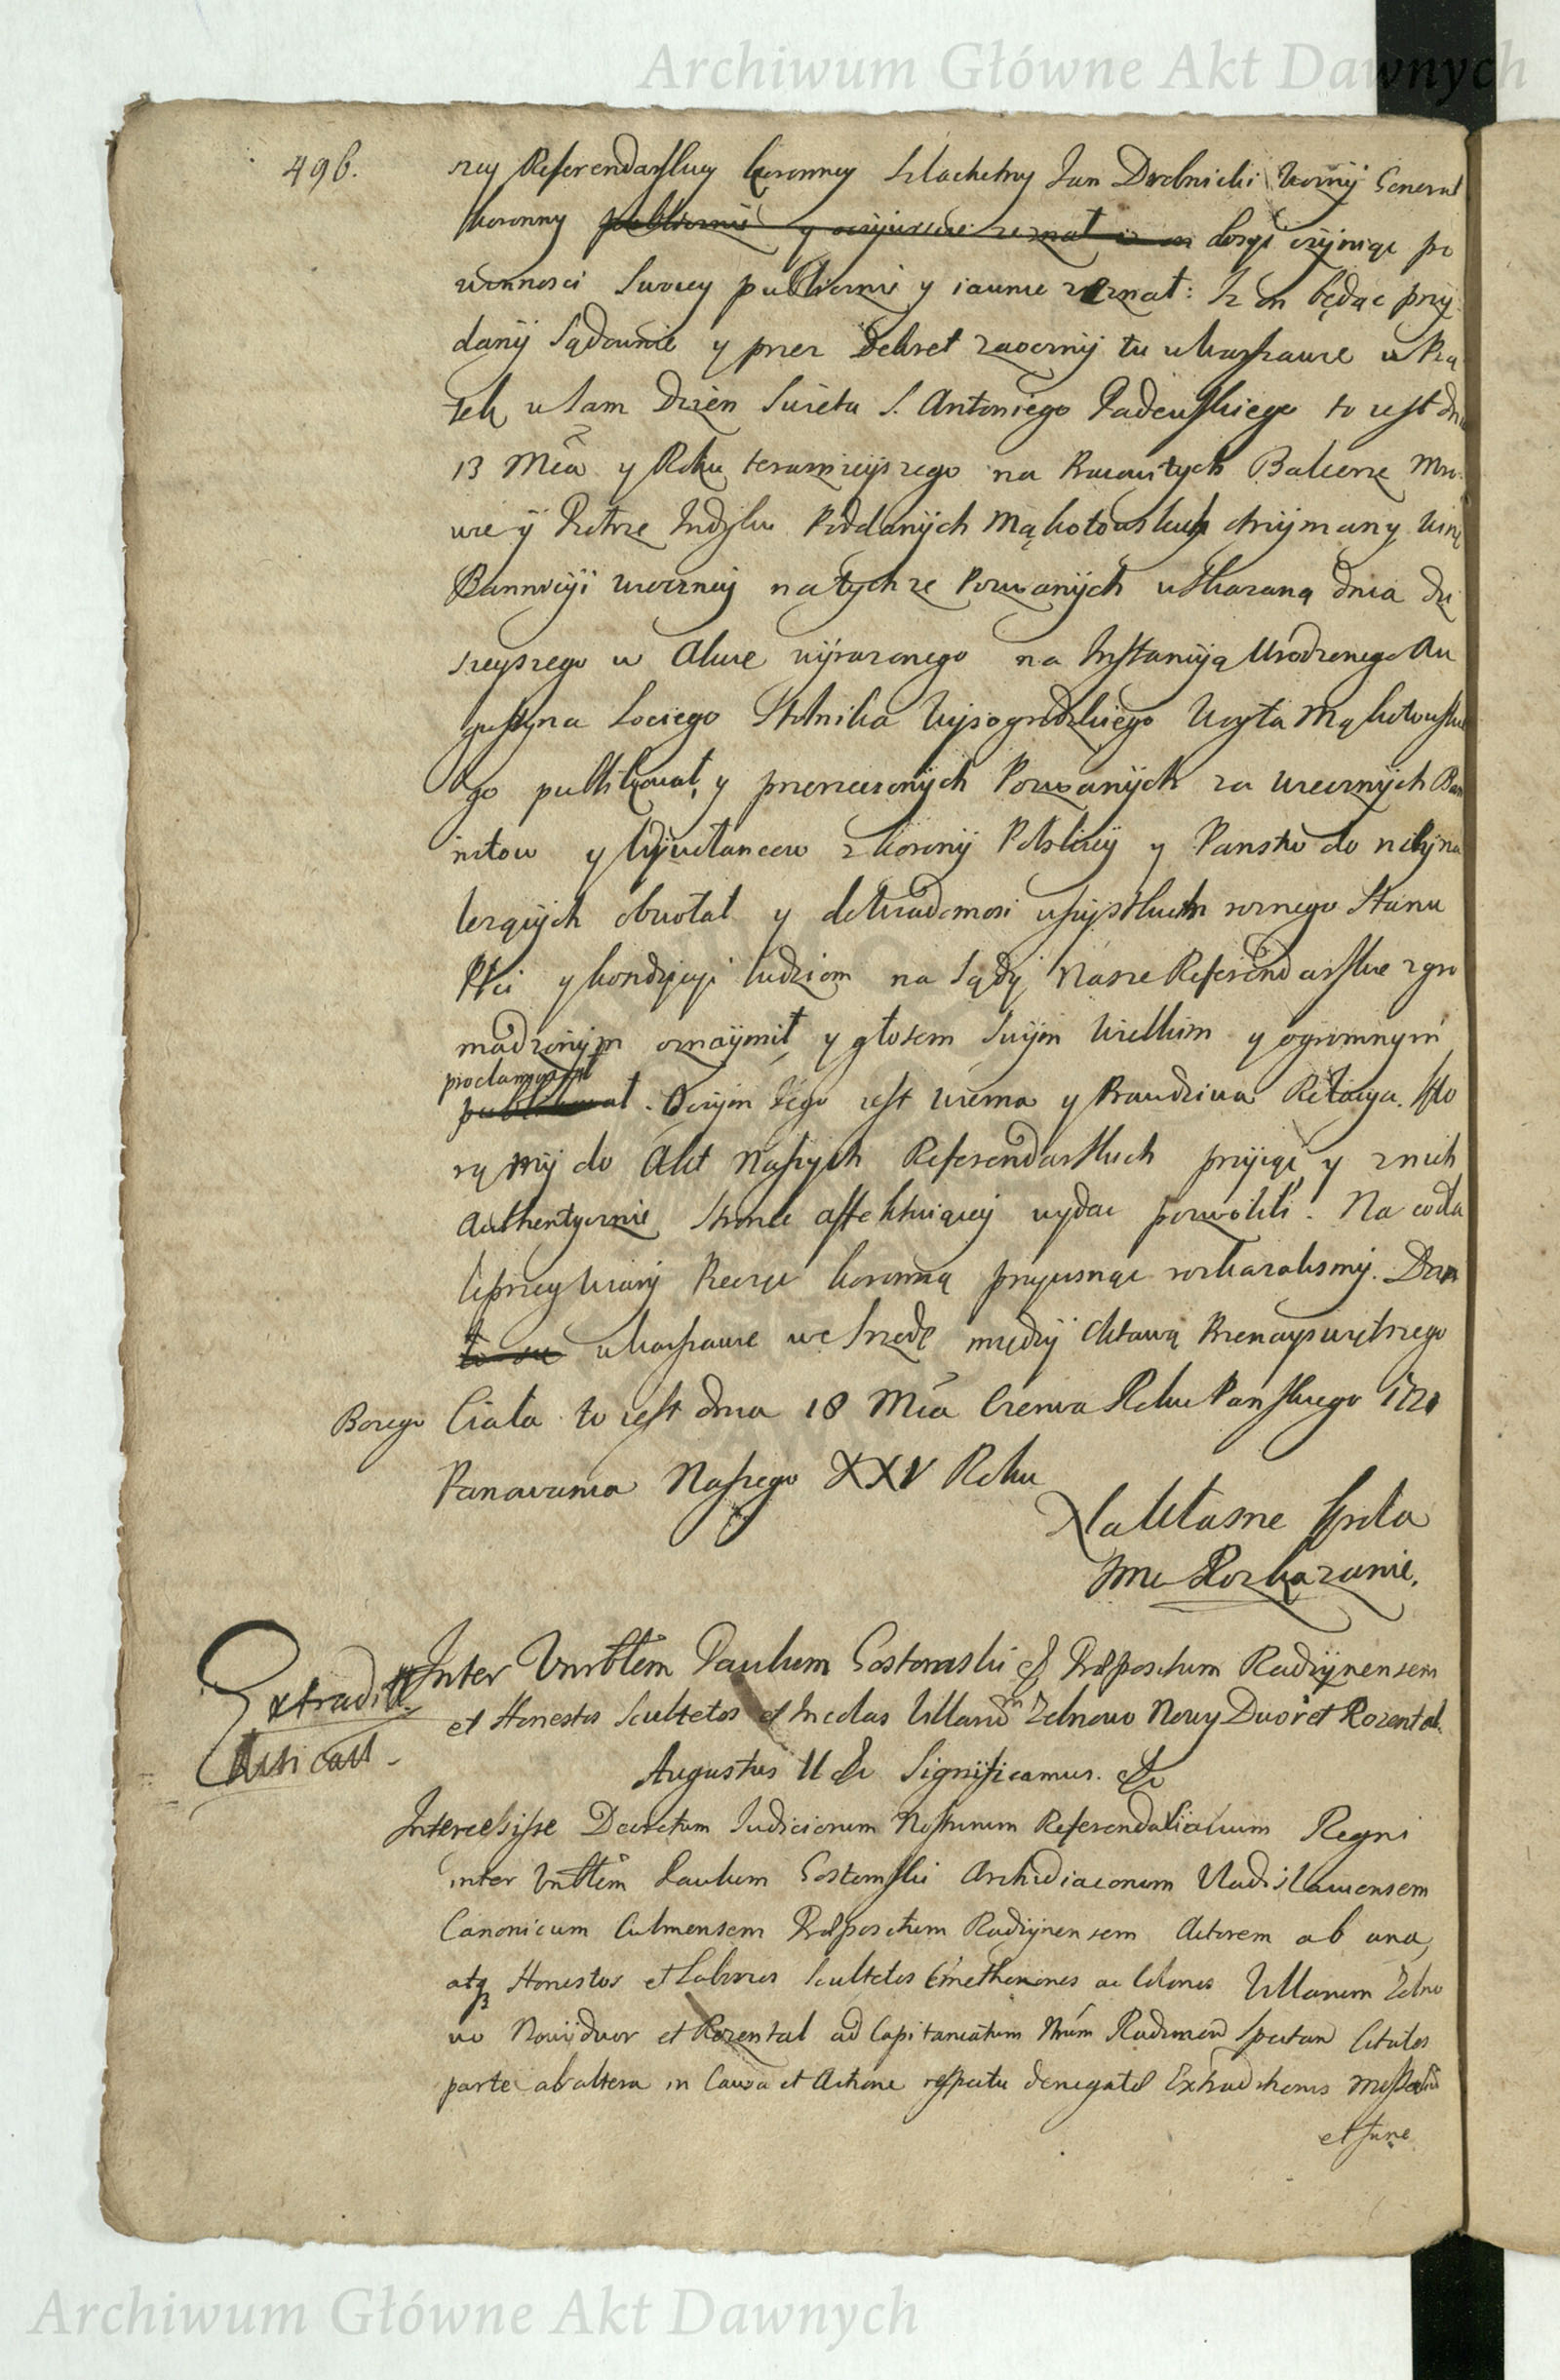 Archiwum Główne Akt Dawnych
496.
szey Referendarskiey koronney Szlachetny Jan Drobnicki Wozny Generał
koronny publicznie y oczywiscie zeznał iz on dosyc czyniąc po
winnosci Swoiey publicznie y iawnie zeznał: Iz on będąc przy
dany Sądownie y przez Dekret zaoczny tu w Warszawie w Pią
tek w Sam Dzien Swięta S. Antoniego Padewskiego to iest dnia
13 Mca y Roku teraznieyszego na Pracowitych Balcerze Mro
wie y Pietrze Poddanych Mąkotowskich otrzymany
Bannicyi wieczney na tychze Pozwanych wskazaną dnia dzi
sieyszego w Akcie wyrazonego na Instancyą Urodzonego Au
gustyna Lociego Stolnika Wyszogrodzkiego Woyta Mąkotowskie
go publikował, y przerzeczonych Pozwanych za wiecznych Ban
nitow y Wywołancow z korony Polskiey y Panstw do niey na
lezących obwołał y do wiadomosci wszystkim roznego Stanu
Płci y kondycyi ludziom na Sądy Nasze Referendarskie zgro
madzonym oznaymił, y głosem Swym Wielkim y ogromnym
proclamował
publikował. O czym Jego iest wierna y Prawdziwa Relacya. Kto
rą my do Akt Naszych Referendarskich przyiąc y z nich
Authentycznie Stronie affektuiącey wydac pozwolili. Na co dla
lepszey wiary Pieczęc koronną przycisnąc rozkazalismy. Dan
to iest w Warszawie we Srzodę między Oktawą Przenayswiętszego
Bozego Ciała to iest dnia 18 Mca Czerwca Roku Panskiego 1721
Panowania Naszego XXV Roku
Na Własne Krola
Jmci Rozkazanie.
Extradit.
Inter Vnrblem Paulum Gostomski & Præpositum Radzynensem
et Honestos Scultetos et Incolas Villarũ Zelnowo Nowy Dwor et Rozental.
Augustus II &c Significamus. &c
Intercessisse Decretum Judiciorum Nostrorum Referendalialium Regni
inter Vnrblem Paulum Gostomski Archidiaconum Vladislauiensem
Canonicum Culmensem Præpositum Radzynensem Actorem ab una,
atq3 Honestos et Labores Scultetos Cmethonones ac Colonos Villarum Zelno
wo Nowydwor et Rozental ad Capitaneatum Nrum Radzinen Spectan Citatos
parte ab altera in Causa et Actione respectu denegatæ Extraditionis
et Jure
Archiwum Główne Akt Dawnych